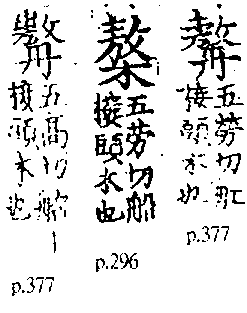 五勞切舡
接頭木也
p.377
五勞切船
接頭木也
p.296
五高切船
接頭木也
p.377